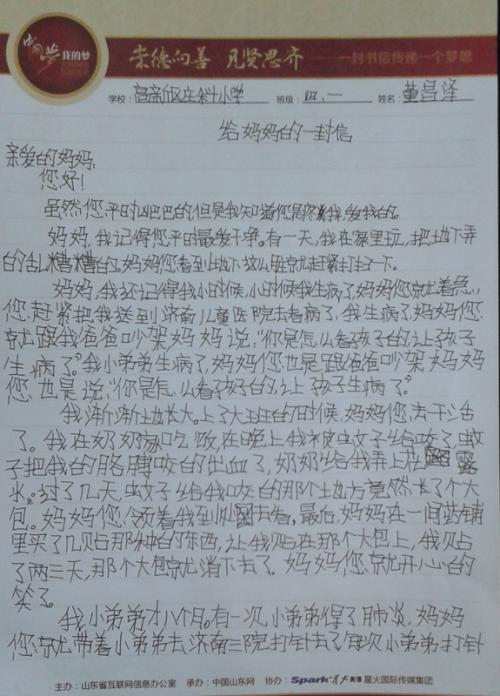 中国梦 我的梦
崇德向善 见贤思齐 一封书信传递一个梦想
学校：高新区庄科小学 班级：四、一 姓名：董昌泽
给妈妈的一封信
亲爱的妈妈:
您好!
虽然您平时凶巴巴的但是我知道您是疼我,爱我的。
妈妈,我记得您平时最爱干净。有一天,我在家里玩,把地下弄
的乱糟糟的,妈妈您看到地下这么脏就赶紧打扫一下。
妈妈,我还记得我小时候,小时候我生病了,妈妈您就着急,
您赶紧把我送到济南儿童医院去看病了,我生病了,妈妈您
就跟我爸爸吵架妈妈说,“你是怎么看孩子的,让孩子
生病了”我小弟弟生病了,妈妈您也是跟爸爸吵架妈妈
您也是说,“你是怎么看孩子的,让孩子生病了。”
我渐渐地长大。上了大班的时候,妈妈您去干活
了。我在奶奶家吃饭,在晚上我被蚊子给咬了,蚊
子把我的胳膊咬的出血了,奶奶给我弄上花露
水。过了几天,蚊子给我咬的那个地方竟然长了个大
包。妈妈您领着我到处去看,最后,妈妈在一间店铺
里买了几贴那种的东西,让我贴在那个大包上,我贴
了两三天,那个大包就消下去了。妈妈您就开心的
笑了。
我小弟弟才八个月。有一次,小弟弟得了肺炎,妈妈
您就带着小弟弟去济南三院打针去了每次小弟弟打针
主办：山东省互联网信息办公室 承办：中国山东网 协办：Spark 星火英语 星火国际传媒集团